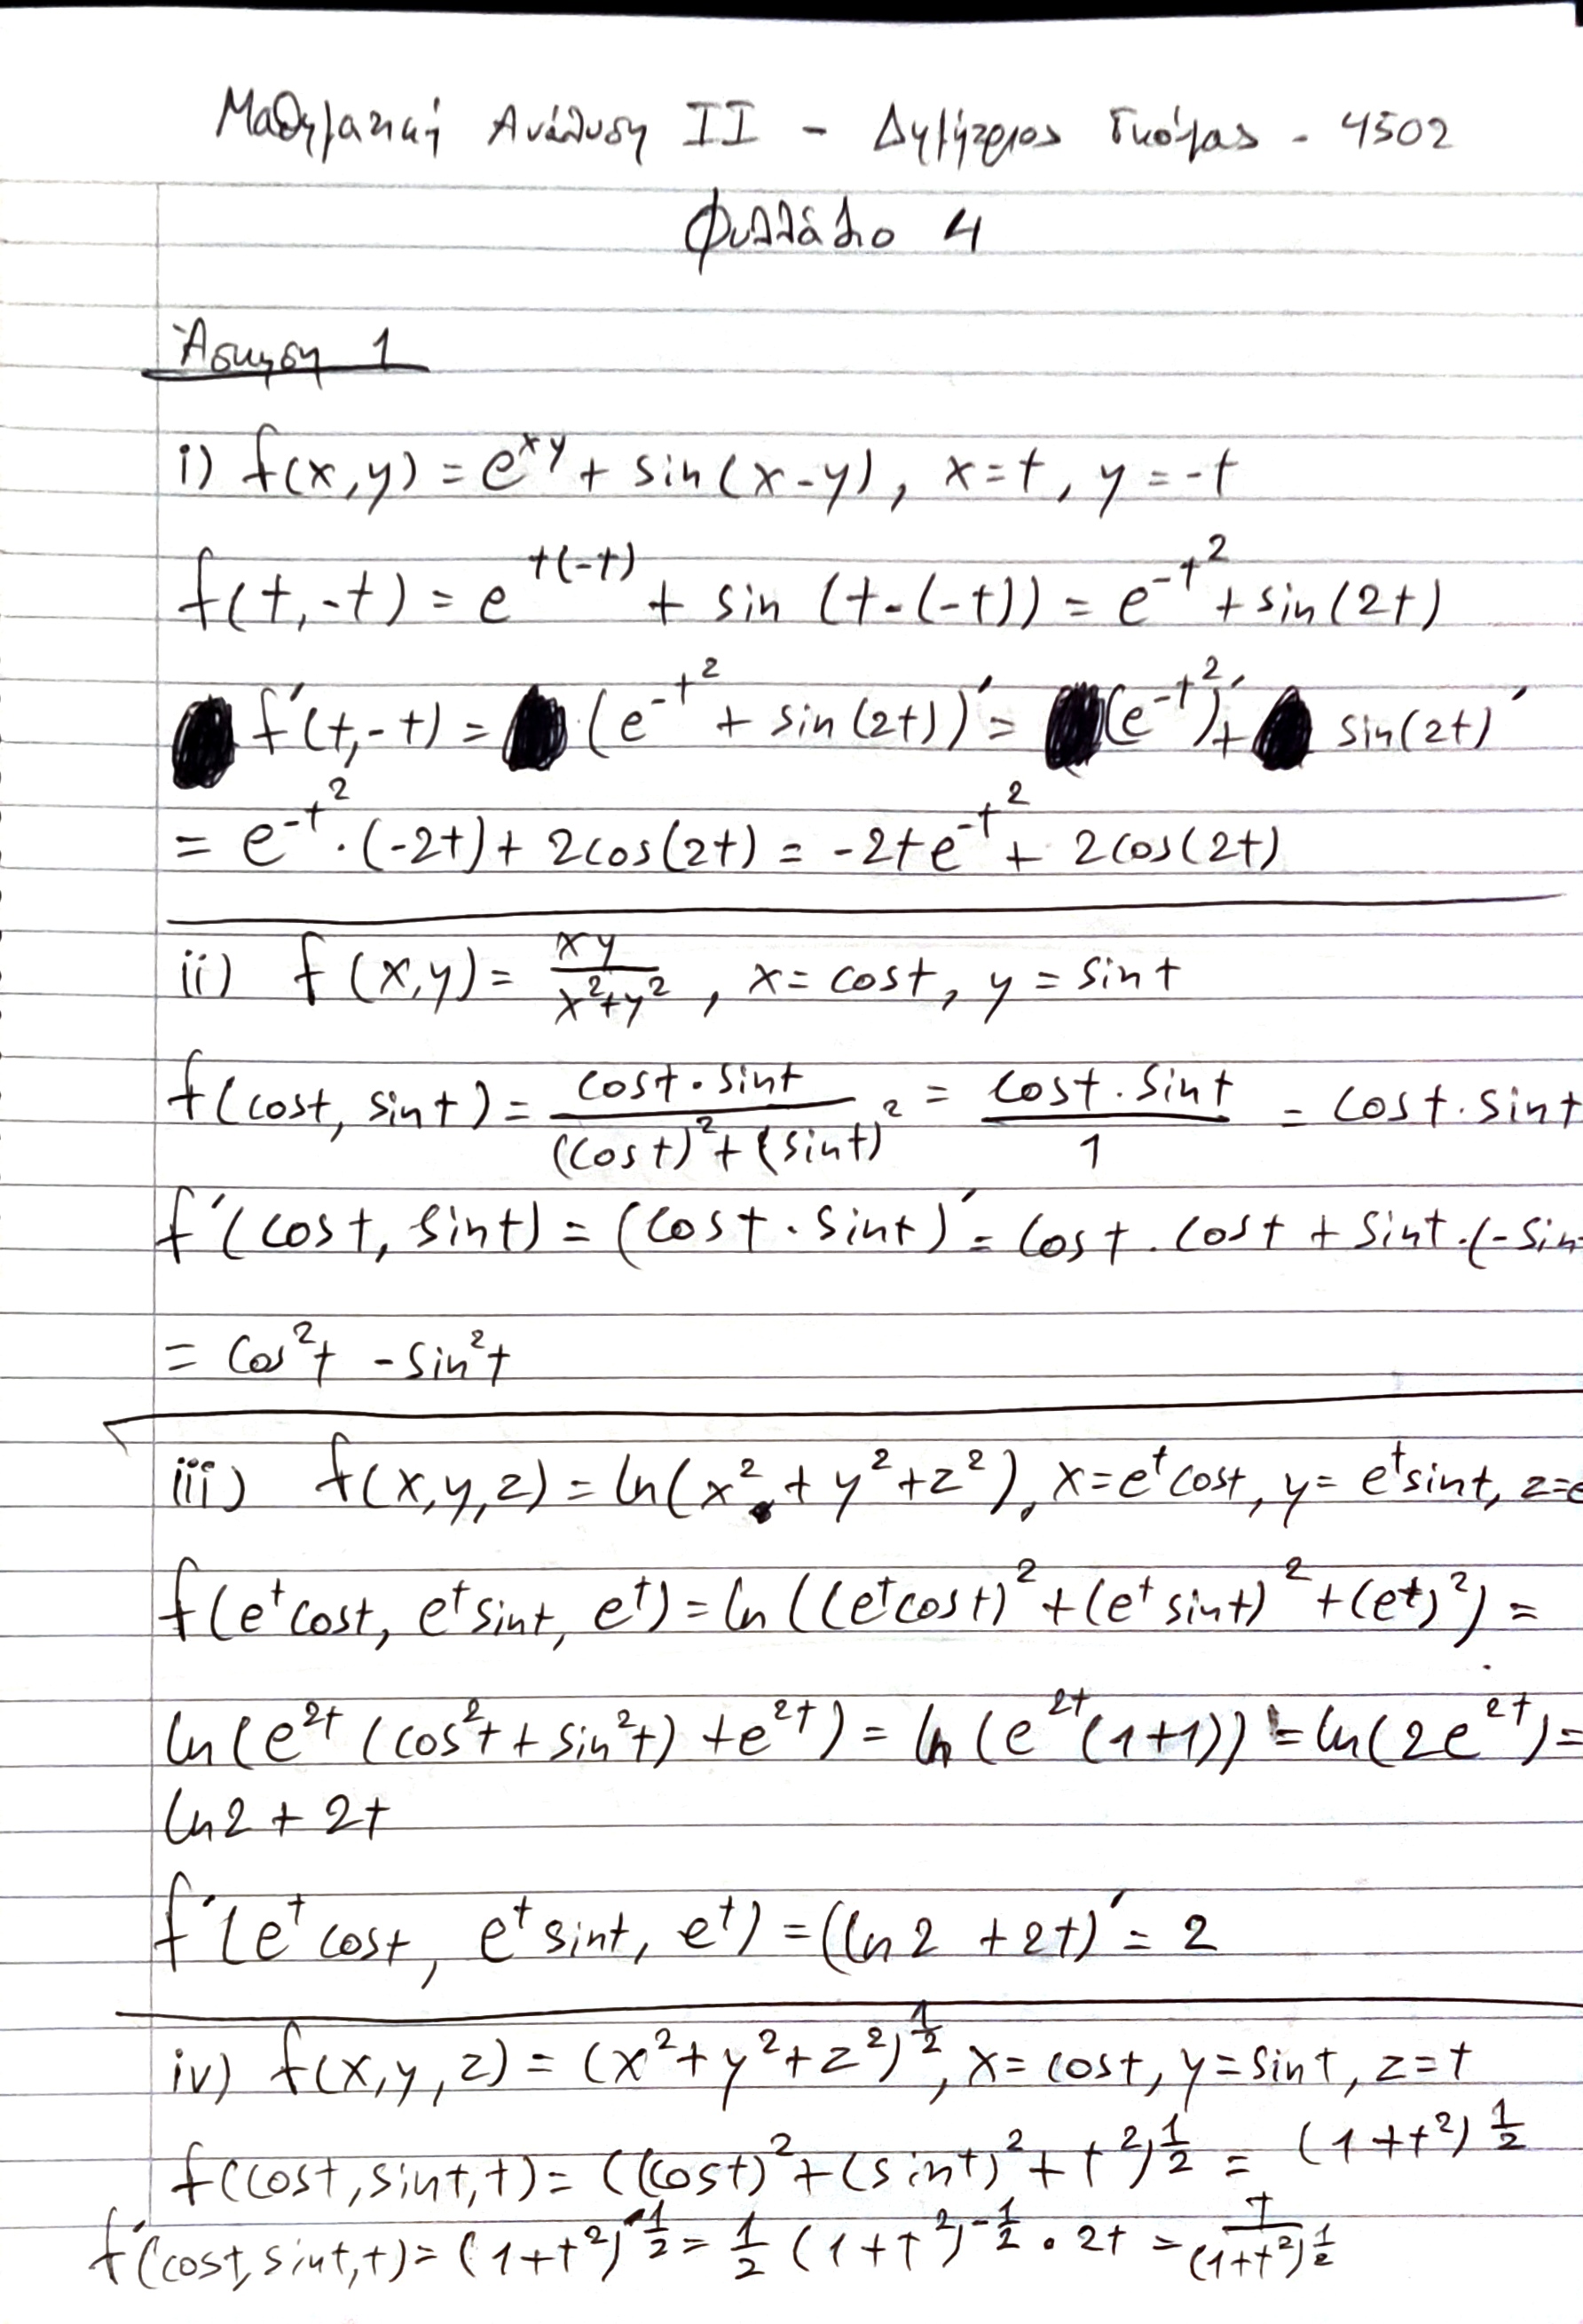 Μαθηματική Ανάλυση II - Δημήτριος Γκόμας - 4502
Φυλλάδιο 4
Άσκηση 1
i) f(x,y) = e^{xy} + sin(x-y), x=t, y=-t
f(t,-t) = e^{t(-t)} + sin (t-(-t)) = e^{-t^2} + sin(2t)
f'(t,-t) = (e^{-t^2} + sin(2t))' = (e^{-t^2})' + sin(2t)'
= e^{-t^2}·(-2t) + 2cos(2t) = -2te^{-t^2} + 2cos(2t)
ii) f(x,y) = \frac{xy}{x^2+y^2}, x=cost, y=sint
f(cost, sint) = \frac{cost·sint}{(cost)^2+(sint)^2} = \frac{cost·sint}{1} = cost·sint
f'(cost, sint) = (cost·sint)' = cost·cost + sint·(-sin
= cos^2t - sin^2t
iii) f(x,y,z) = ln(x^2+y^2+z^2), x=e^tcost, y=e^tsint, z=e
f(e^tcost, e^tsint, e^t) = ln((e^tcost)^2+(e^tsint)^2+(e^t)^2) =
ln(e^{2t}(cos^2t+sin^2t)+e^{2t}) = ln(e^{2t}(1+1)) = ln(2e^{2t}) =
ln2 + 2t
f'(e^tcost, e^tsint, e^t) = (ln2 + 2t)' = 2
iv) f(x,y,z) = (x^2+y^2+z^2)^{\frac{1}{2}}, x=cost, y=sint, z=t
f(cost,sint,t) = ((cost)^2+(sint)^2+t^2)^{\frac{1}{2}} = (1+t^2)^{\frac{1}{2}}
f'(cost,sint,t) = (1+t^2)'^{\frac{1}{2}} = \frac{1}{2}(1+t^2)^{-\frac{1}{2}}·2t = \frac{t}{(1+t^2)^{\frac{1}{2}}}